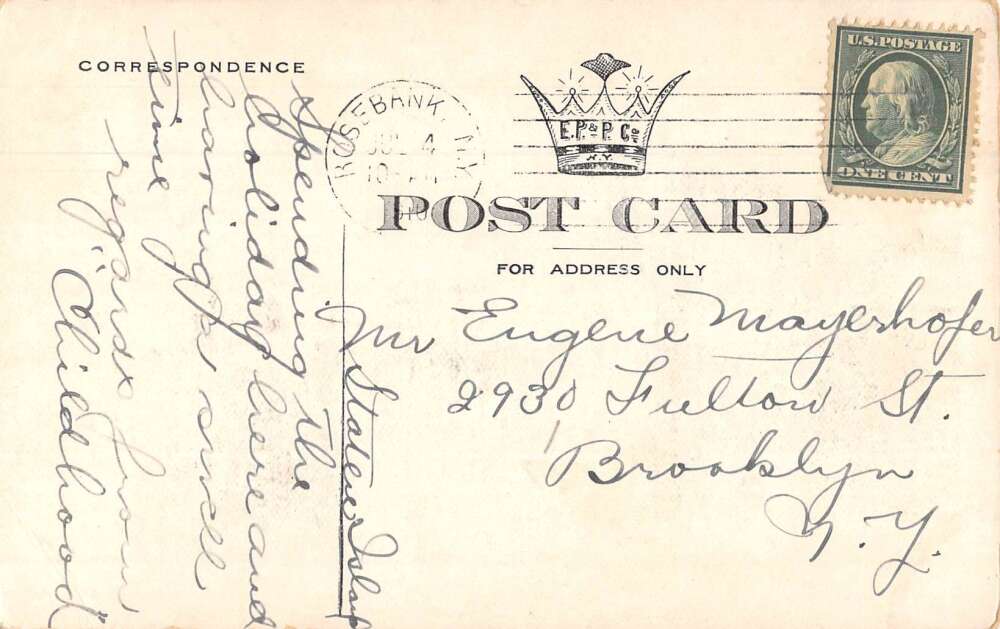 CORRESPONDENCE
ROSEBANK N.Y.
JUL 4
1910
E.P.&P.Co.
N.Y.
U.S.POSTAGE
ONE CENT
POST CARD
FOR ADDRESS ONLY
Mr Eugene Mayerhofer
2930 Fulton St.
Brooklyn
N.Y.
Staten Island
Spending the
holiday here and
having a swell
time
regards from
"Childhood"